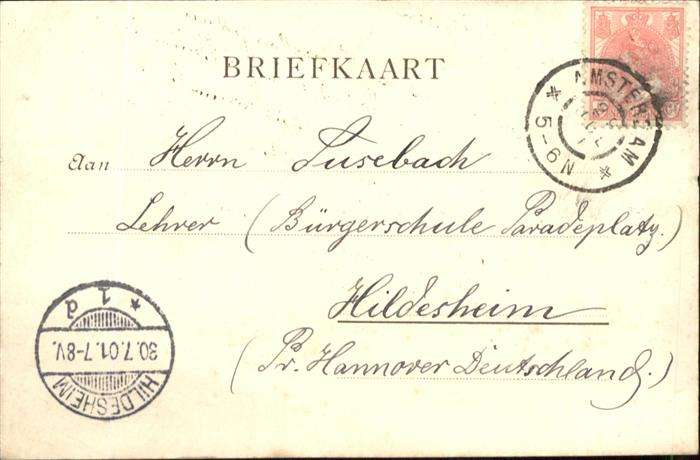 BRIEFKAART
AMSTERDAM
5-6 N
Aan Herrn Tusebach
Lehrer (Bürgerschule Paradeplatz.)
Hildesheim
(Pr. Hannover Deutschland.)
* 1 d
30.7.01.7-8V.
HILDESHEIM